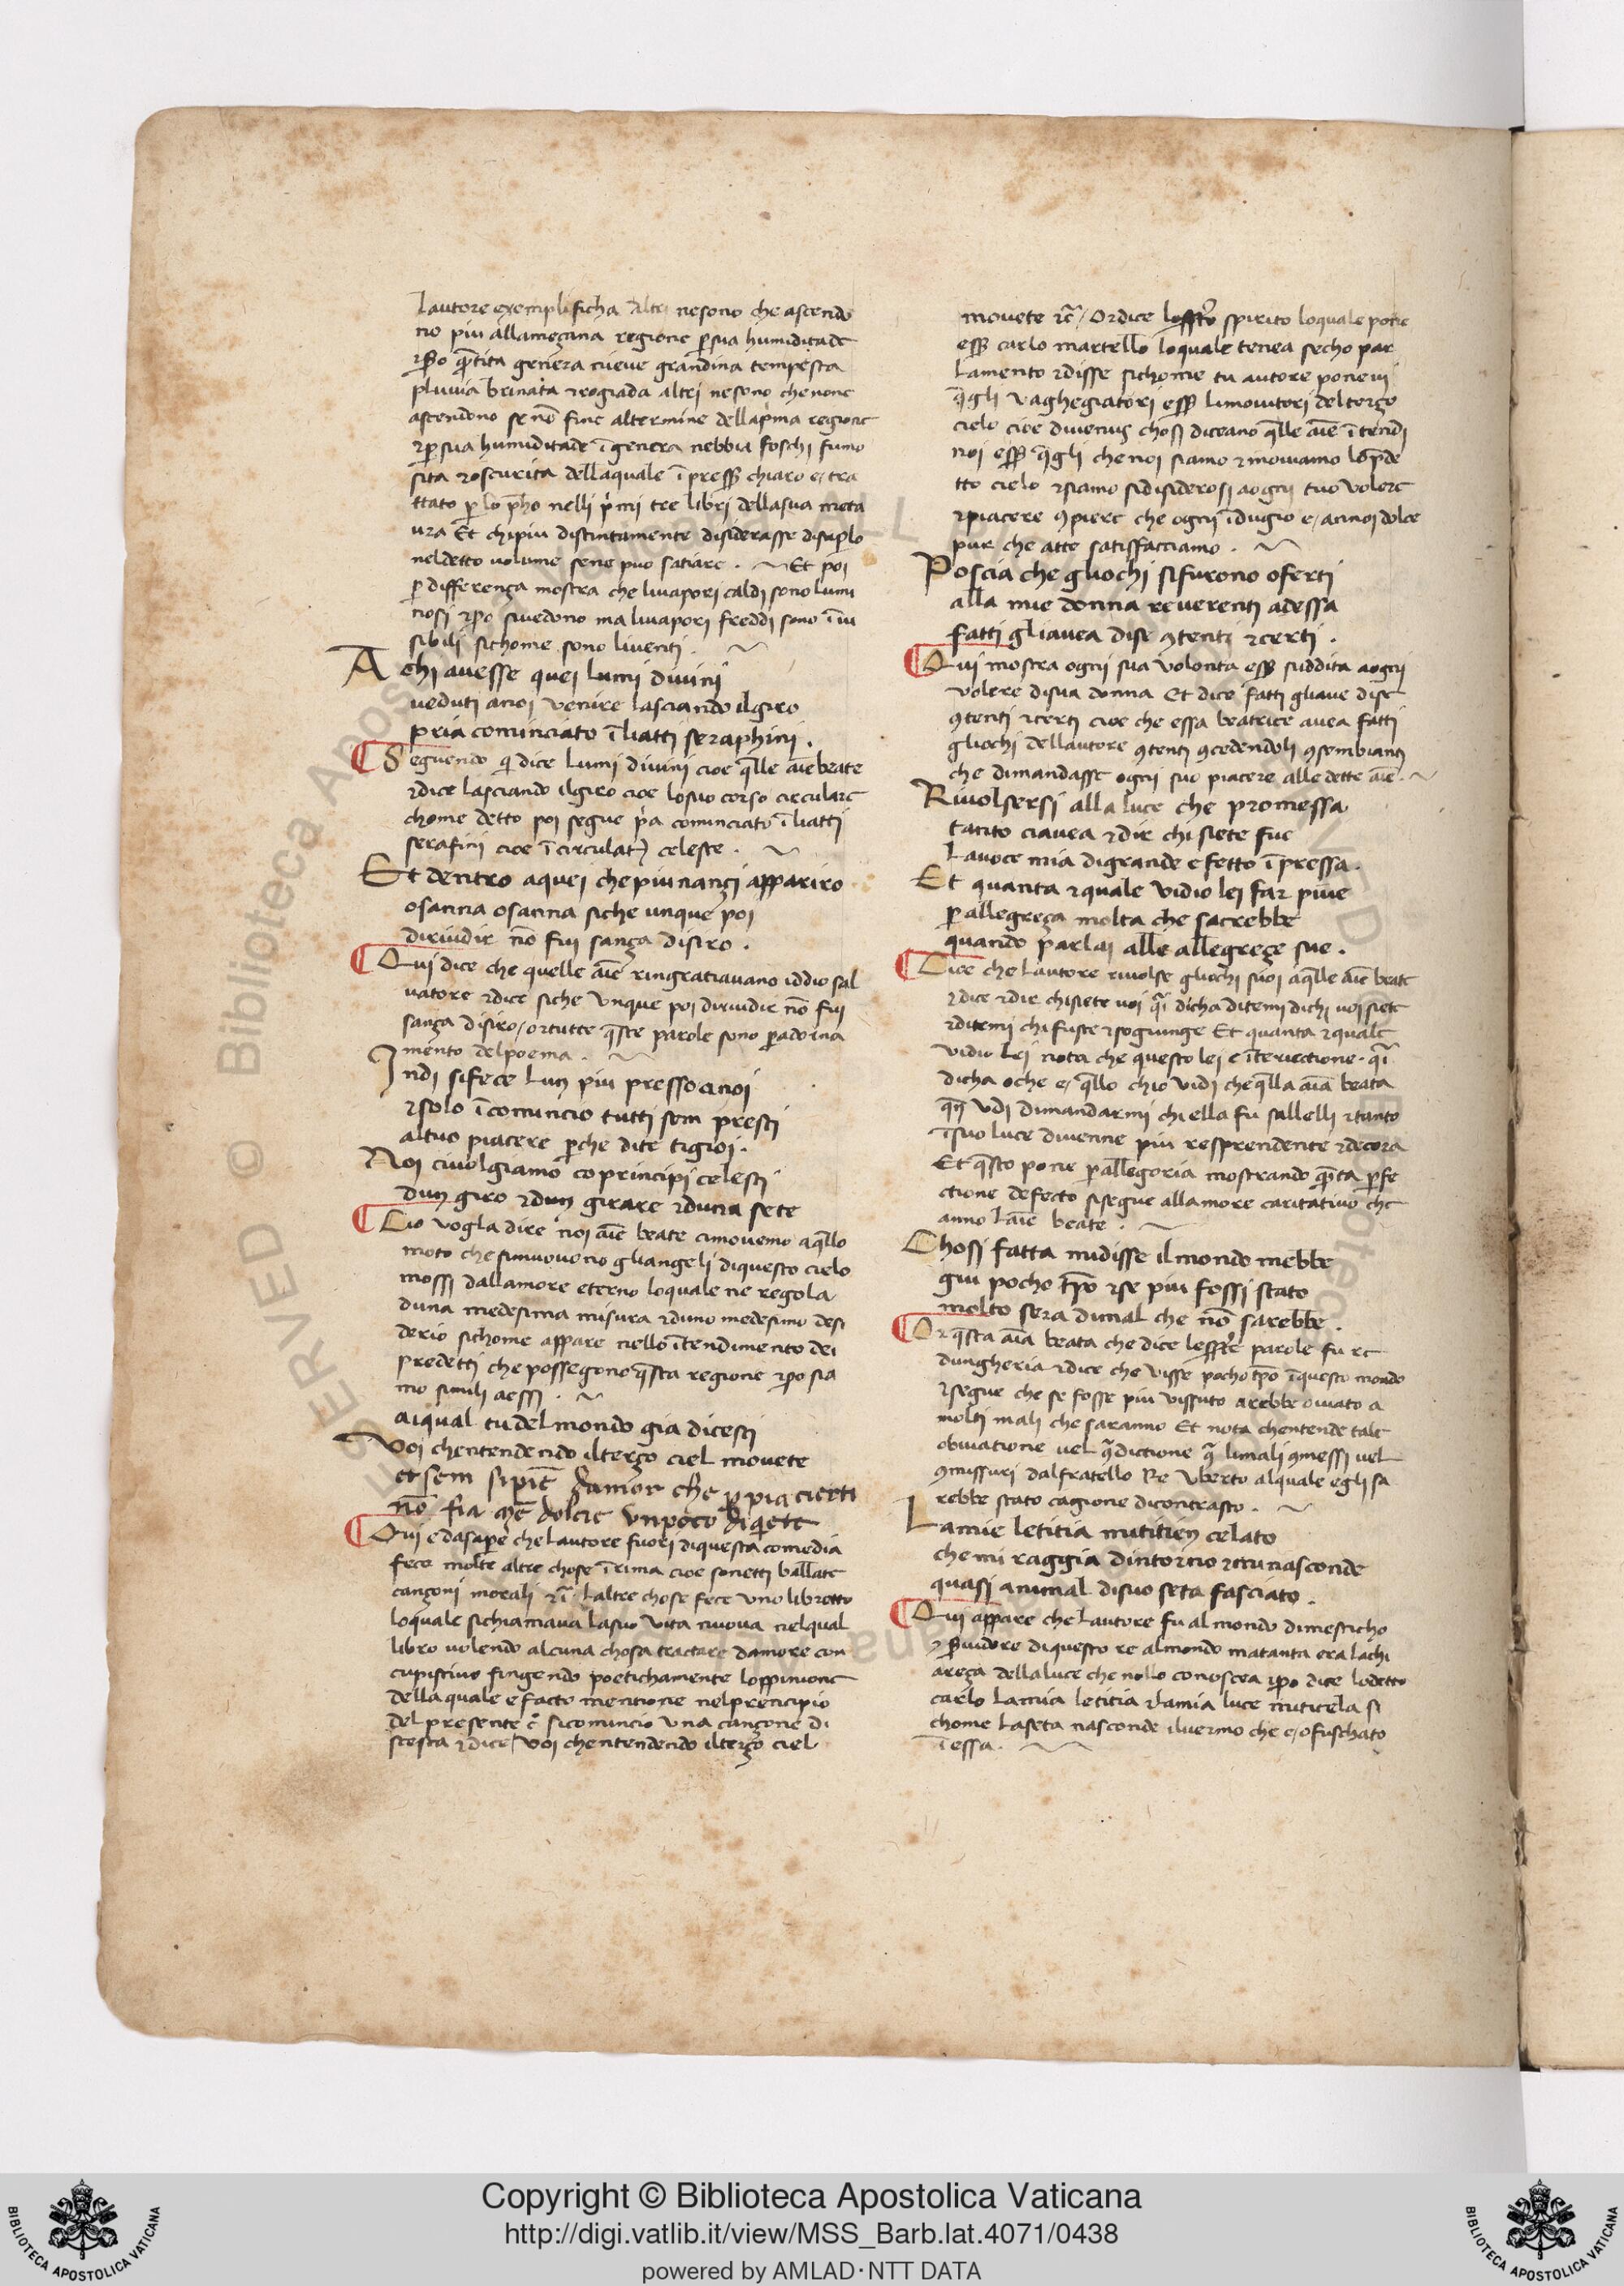 lautore exemplificha Altri nesono che ascendo
no piu allamezana regione p̱ sua humiditade
⁊ p̱o q̄ntita geniera nieve grandina tempesta
pluvia brinata ⁊ rogiada altri nesono chenone
ascendono se nō fine altermine dellap̱ma regione
⁊ p̱sua humiditade īgenera nebbia foschi fumo
sita ⁊ oscurita dellaquale īpress̄ chiaro e/ tra
ttato p̱ lo p̄ho nelli p̱mi tre libri dellasua meta
ura Et chipiu distintamente disiderasse disap̱lo
neldetto volume sene puo satiare . Et poi
p̱ differenza mostra che livapori caldi sono lumi
nosi ⁊ p̱o sivedono ma livapori freddi sono īvi
sibili sichome sono liventi .
A chi avesse quei lumi divini
veduti anoi venire lasciando ilgiro
pria cominciato īliatti seraphini .
Seguendo q̄ dice lumi divini cioe q̄lle aīe beate
⁊ dice lasciando ilgiro cioe losuo corso circulare
chome detto poi segue p̱a cominciato īliatti
serafini cioe īcirculat̄ celeste .
Et dentro aquei chepiunanzi appariro
osanna osanna siche unque poi
diriudir nō fui sanza disiro .
Qui dice che quelle aīe ringratiavano iddio sal
vatore ⁊ dice siche Vnque poi diriudir nō fui
sanza disiro / or tutte q̄ste parole sono p̱adorna
mento delpoema .
Indi sifece lun piu presso anoi
⁊ solo īcomincio tutti sem presti
altuo piacere p̱che dite tigioi .
Noi civolgiamo coprincipi celesti
dun giro ⁊ dun girare ⁊ duna sete
Cio vogla dire noi aīe beate cimovemo aq̄llo
moto che simuovono gliangeli diquesto cielo
mossi dallamore eterno loquale ne regola
duna medesima misura ⁊ duno medesimo desi
derio sichome appare nello ītendimento dei
predetti che possegono q̄sta regione ⁊ p̱o sia
mo simili aessi .
aiqual tudelmondo gia dicesti
Voi chentendendo ilterzo ciel movete
et sem sipiē damor che p̱ piacierti
nō fia mē dolcie vnpoco diq̄ete
Qui e dasap̱e che lautore fuori diquesta comedia
fece molte altre chose īrima cioe sonetti ballate
canzoni morali ⁊ ī laltre chose fece vno libretto
loquale sichiamava lasuo Vita nuova nelqual
libro volendo alcuna chosa tractare damore con
cupiscivo fingendo poetichamente loppinione
della quale e facto mentione nelprencipio
del presente c̄ sicomincio vna canzone di
stesta ⁊ dice / Voi chentendendo ilterzo ciel
movete ⁊c̄ / Ordice spirito loquale pone
ess̄ carlo martello loquale tenea secho par
lamento ⁊ disse sichome tu autore ponevi
q̄gli vaghegiatori ess̄ limovitori delterzo
cielo cioe divenus chosi diceano q̄lle aīe ītendi
noi ess̄ q̄gli chenoi siamo ⁊ moviamo lop̱de
tto cielo ⁊ siamo sidisiderosi aogni tuo volere
⁊ piacere ꝯpiere che ogni īdugio e/ annoi dolce
pur che atte satisfacciamo .
Poscia che gliochi sifurono oferti
alla mie donna reverenti adessa
fatti gliavea dise ꝯtenti ⁊ certi .
Qui mostra ogni sua volonta ess̄ suddita aogni
volere disua donna Et dice fatti gliave dise
ꝯtenti ⁊ certi cioe che essa beatrice avea fatti
gliochi dellautore ꝯtenti ꝯcedendoli ꝯsembianti
che dimandasse ogni suo piacere alle dette aīe .
Rivolsersi alla luce che promessa
tanto ciavea ⁊ dir chi siete fue
lavoce mia digrande efetto īpressa .
Et quanta ⁊ quale vidio lei far piue
p̱ allegreza molta che sacrebbe
quando parlai alle allegreze sue .
Dice che lautore rivolse gliochi suoi aq̄lle aīe beate
⁊ dice ⁊ dir chisiete voi q̄i dicha ditemi dichi voi siete
⁊ ditemi chi fuste ⁊ sogiunge Et quanta ⁊ quale
vidio lei nota che questo lei e īteriectione . q̄i
dicha oche e/ q̄llo chio vidi che q̄lla aīa beata
q̄n vdi dimandarmi chi ella fu sallelli ⁊ tanto
īsuo luce divenne piu resprendente ⁊ decora
Et q̄sto pone p̱allegoria mostrando q̄nta p̱fe
ctione defecto sisegue allamore caritativo che
anno laīe beate .
Chosi fatta midisse ilmondo mebbe
giu pocho tp̄o ⁊ se piu fossi stato
molto sera dimal che nō sarebbe .
Or q̄sta aīa beata che dice parole fu re
dungheria ⁊ dice che visse pocho tp̄o īquesto mondo
⁊ segue che se fosse piu vissuto arebbe oviato a
molti mali che saranno Et nota chentende tale
obviatione vel ꝯ̄dictione q̄ limali ꝯmessi vel
ꝯmissuri dalfratello Re Vberto alquale egli sa
rebbe stato cagione dicontrasto .
Lamie letitia mititien celato
chemi raggia dintorno ⁊ minasconde
quasi animal disuo seta fasciato .
Qui appare che lautore fu al mondo dimesticho
⁊ s̱vidore diquesto re almondo matanta era lachi
areza dellaluce che nollo conoscea ⁊ p̱o dice lodetto
carlo lamia letitia ⁊ lamia luce miticela si
chome laseta nasconde ilvermo che e/ ofuschato
īessa .
Copyright © Biblioteca Apostolica Vaticana
http://digi.vatlib.it/view/MSS_Barb.lat.4071/0438
powered by AMLAD·NTT DATA
BIBLIOTECA APOSTOLICA VATICANA
BIBLIOTECA APOSTOLICA VATICANA